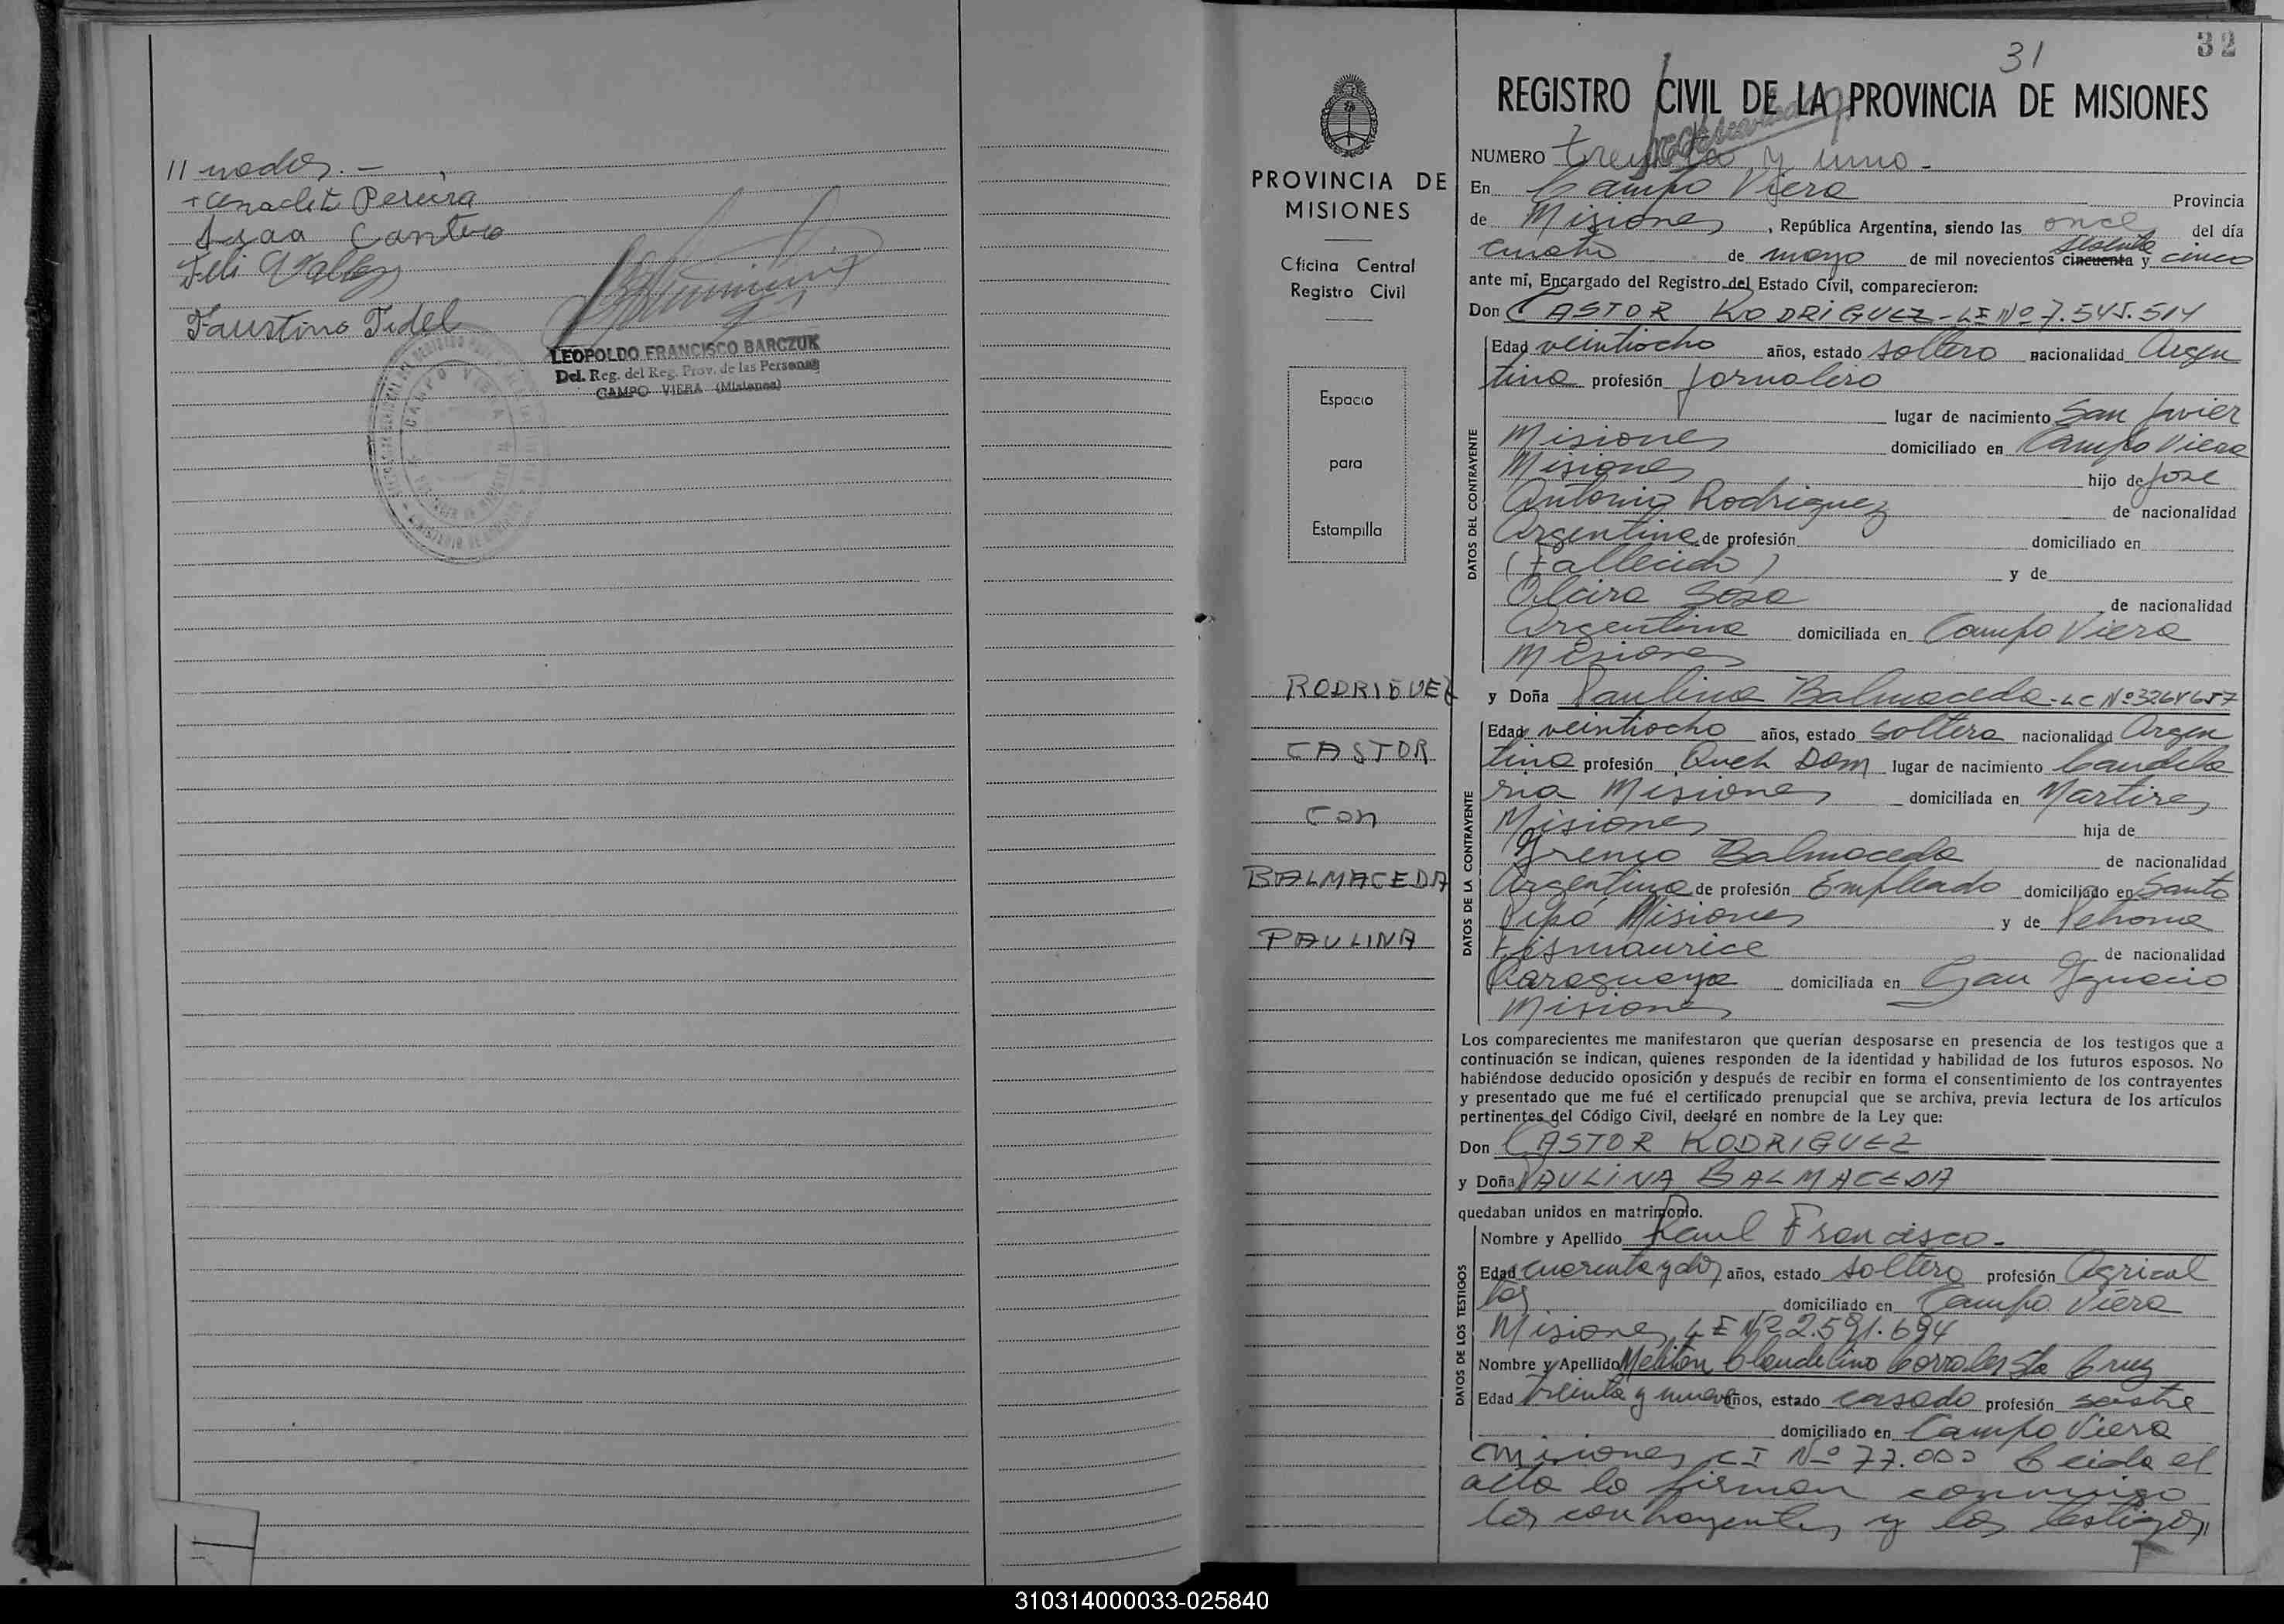 // nados. -
Anaclet Pereira
Juan Cantero
Faustino Fidel
LEOPOLDO FRANCISCO BARCZUK
Del. Reg. del Reg. Prov. de las Personas
CAMPO VIERA (Misiones)
CAMPO VIERA
PROVINCIA DE
MISIONES
Oficina Central
Registro Civil
Espacio
para
Estampilla
RODRIGUEZ
CASTOR
con
BALMACEDA
PAULINA
31
32
REGISTRO CIVIL DE LA PROVINCIA DE MISIONES
NUMERO treinta y uno -
En Campo Viera Provincia
de Misiones, República Argentina, siendo las once del día
cuatro de mayo de mil novecientos cincuenta sesenta y cinco
ante mí, Encargado del Registro del Estado Civil, comparecieron:
Don CASTOR RODRIGUEZ - LE Nº 7.545.514
DATOS DEL CONTRAYENTE
Edad veintiocho años, estado soltero nacionalidad Argen
tina profesión Jornalero
lugar de nacimiento San Javier
Misiones domiciliado en Campo Viera
Misiones hijo de Jose
Antonio Rodriguez de nacionalidad
Argentina de profesión domiciliado en
(Fallecido) y de
Alcira Sosa de nacionalidad
Argentina domiciliada en Campo Viera
Misiones
y Doña Paulina Balmaceda - LC Nº 3264657
DATOS DE LA CONTRAYENTE
Edad veintiocho años, estado soltera nacionalidad Argen
tina profesión Queh Dom lugar de nacimiento Candela
ria Misiones domiciliada en Martires
Misiones hija de
Balmaceda de nacionalidad
Argentino de profesión Empleado domiciliado en Santo
Pipó Misiones y de
de nacionalidad
Paraguaya domiciliada en San Ignacio
Misiones
Los comparecientes me manifestaron que querían desposarse en presencia de los testigos que a
continuación se indican, quienes responden de la identidad y habilidad de los futuros esposos. No
habiéndose deducido oposición y después de recibir en forma el consentimiento de los contrayentes
y presentado que me fué el certificado prenupcial que se archiva, previa lectura de los artículos
pertinentes del Código Civil, declaré en nombre de la Ley que:
Don CASTOR RODRIGUEZ
y Doña PAULINA BALMACEDA
quedaban unidos en matrimonio.
DATOS DE LOS TESTIGOS
Nombre y Apellido Raul Francisco -
Edad cuarenta y dos años, estado soltero profesión Agricul
tor domiciliado en Campo Viera
Misiones LE Nº 2.591.694
Nombre y Apellido Meliton Claudelino Corrales Sta Cruz
Edad treinta y nueve años, estado casado profesión sastre
domiciliado en Campo Viera
Misiones CI Nº 77.000 Leida el
acta la firman conmigo
los contrayentes y los testigos //
310314000033-025840